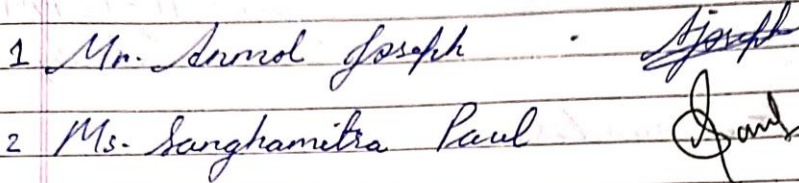 1 Mr. Anmol Joseph . Ajoseph
2 Ms. Sanghamitra Paul SPaul